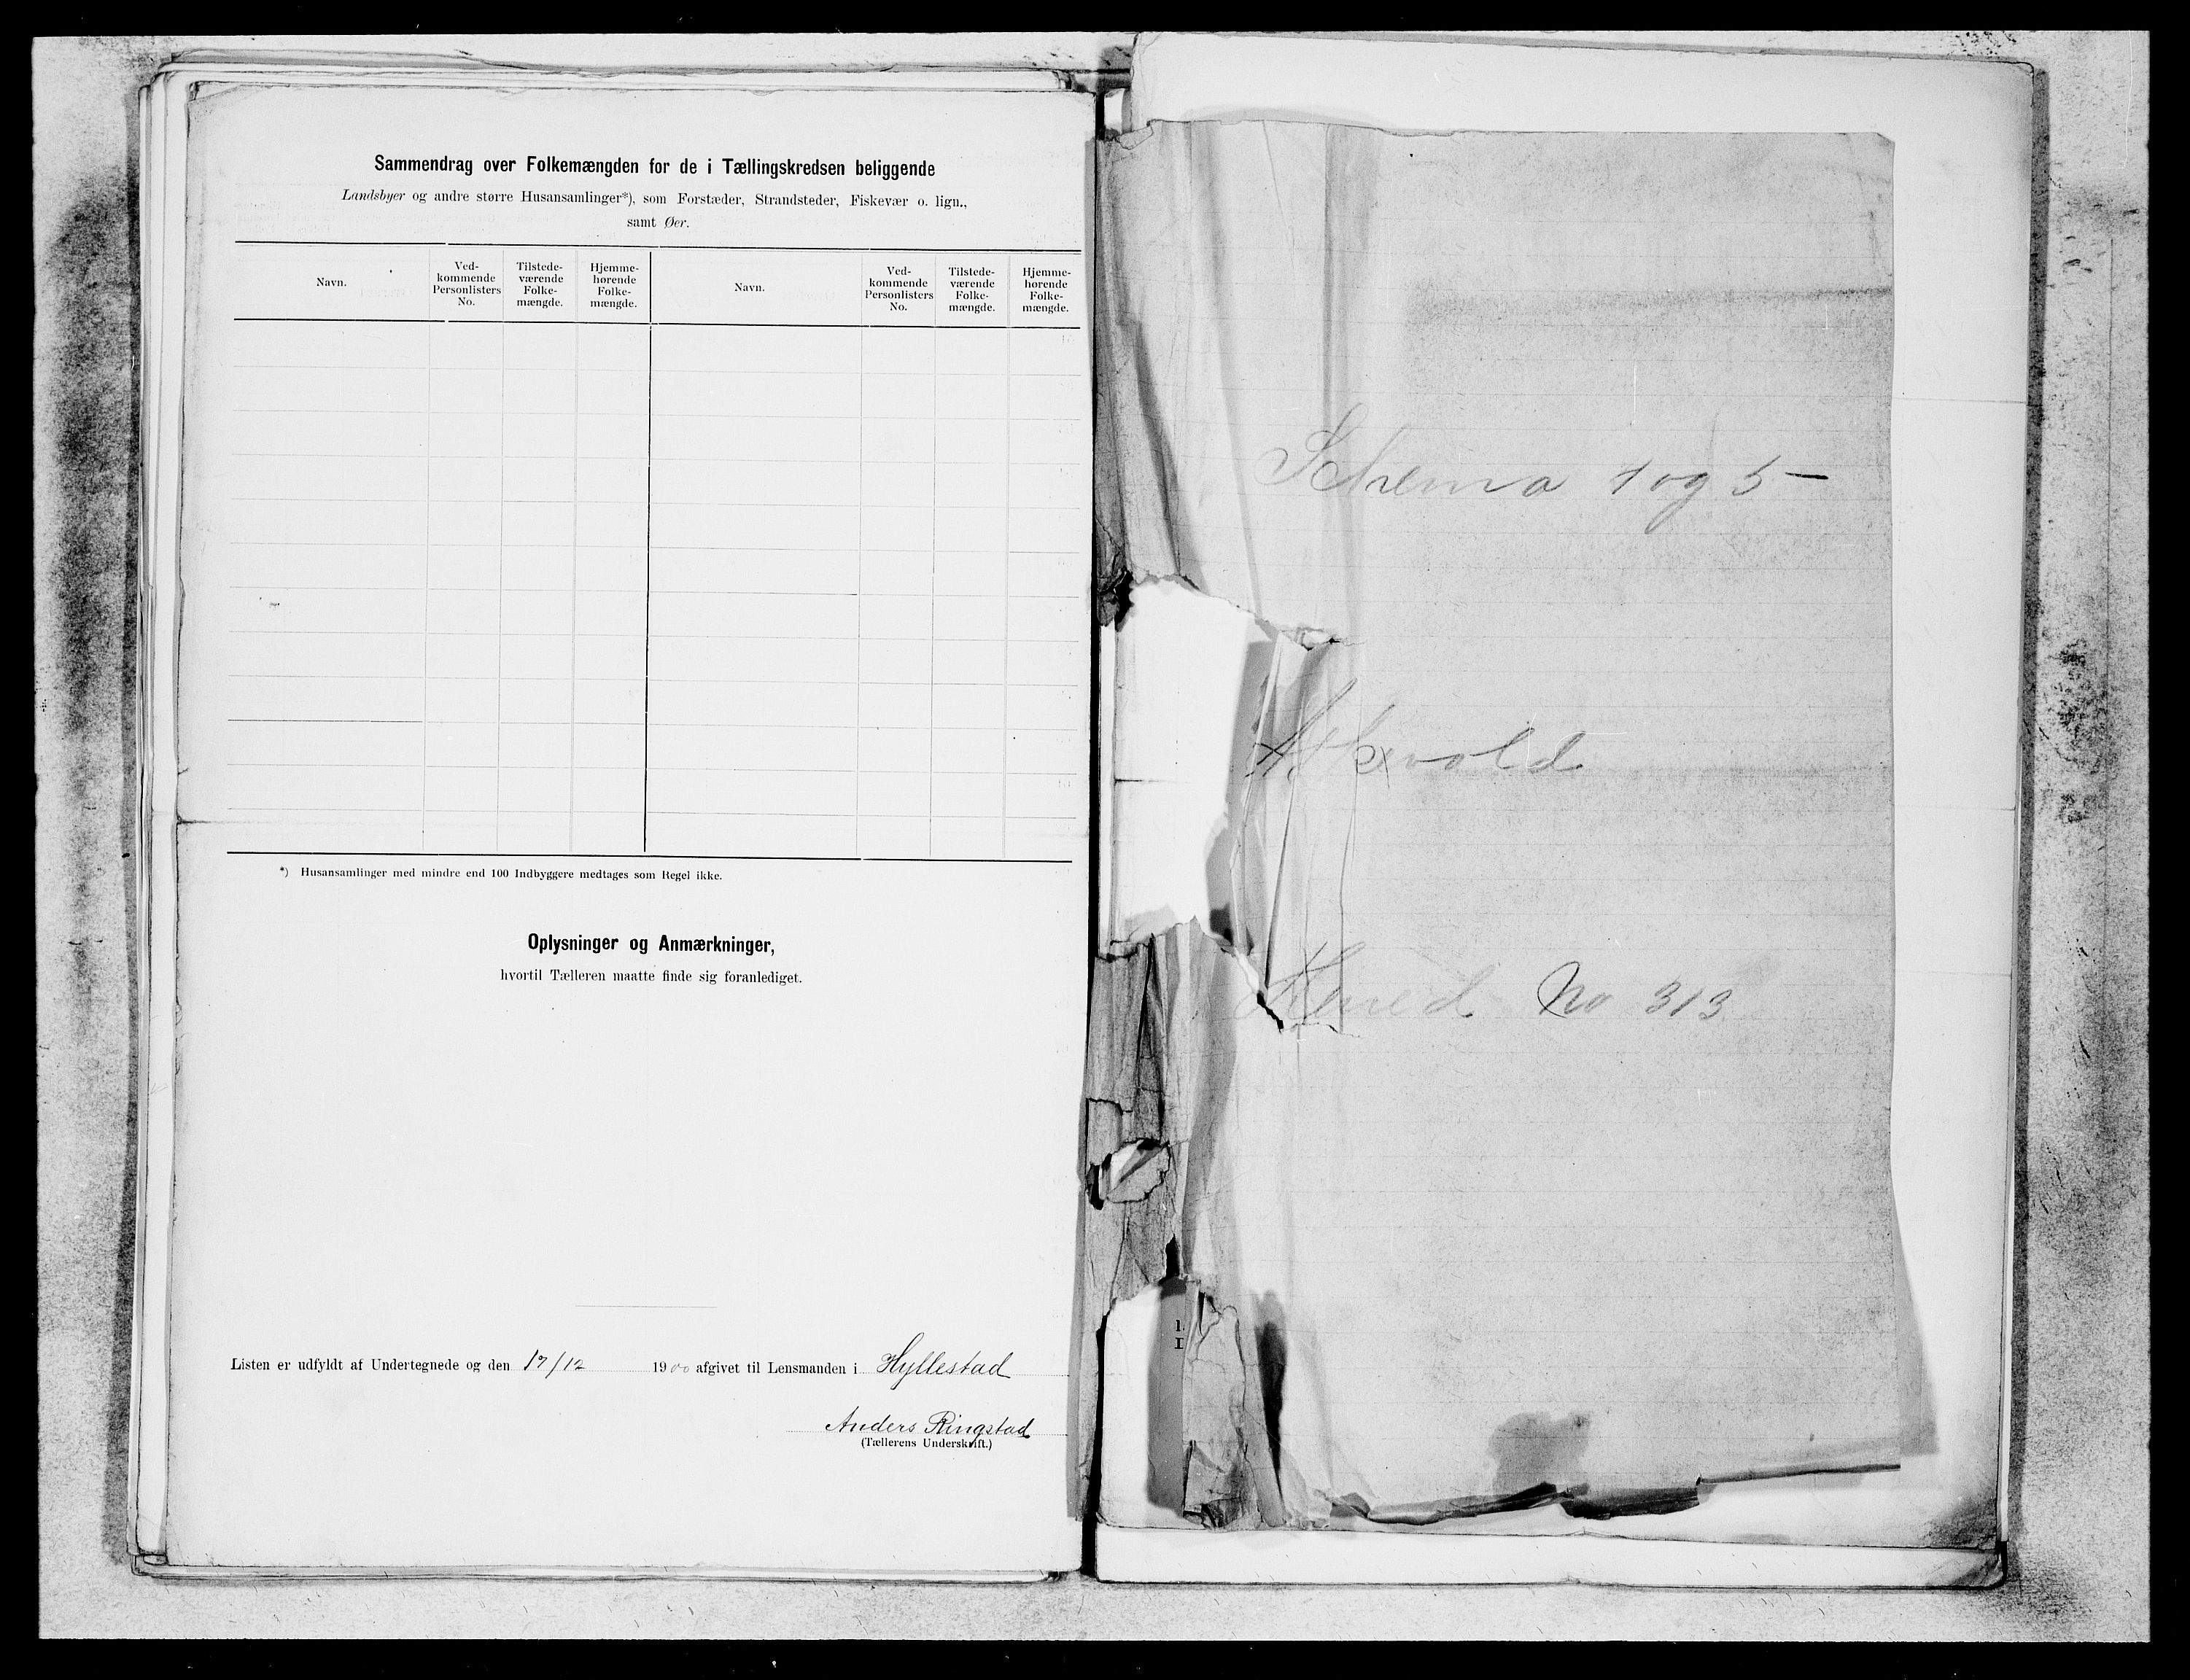 Sammendrag over Folkemængden for de i Tællingskredsen beliggende
Landsbyer og andre større Husansamlinger*), som Forstæder, Strandsteder, Fiskevær o. lign.,
samt Øer.
Navn.
Ved-
kommende
Personlisters
No.
Tilstede-
værende
Folke-
mængde.
Hjemme-
hørende
Folke-
mængde.
Navn.
Ved-
kommende
Personlisters
No.
Tilstede-
værende
Folke-
mængde.
Hjemme-
hørende
Folke-
mængde.
*) Husansamlinger med mindre end 100 Indbyggere medtages som Regel ikke.
Oplysninger og Anmærkninger,
hvortil Tælleren maatte finde sig foranlediget.
Listen er udfyldt af Undertegnede og den 17/12 1900 afgivet til Lensmanden i Hyllestad
Anders Ringstad
(Tællerens Underskrift.)
Schema 1 og 5 –
Askvold
Hered No 313